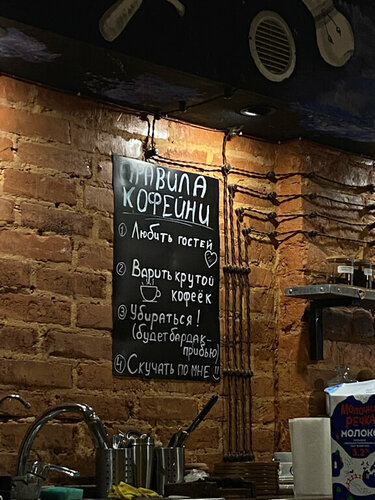 ПРАВИЛА
КОФЕЙНИ
1 Любить гостей
2 Варить крутой
кофеёк
3 Убираться!
(будет бардак-
прибью)
4 Скучать по мне !!
Молочная
речка
МОЛОКО
3,2%